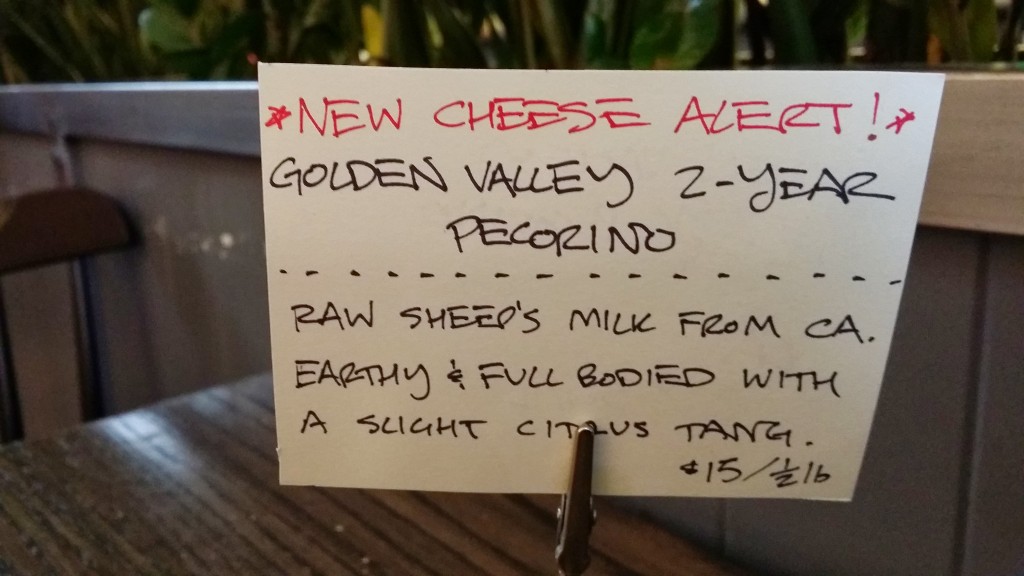 *NEW CHEESE ALERT!*
GOLDEN VALLEY 2-YEAR
PECORINO
RAW SHEEP'S MILK FROM CA.
EARTHY & FULL BODIED WITH
A SLIGHT CITRUS TANG.
$15/½ lb